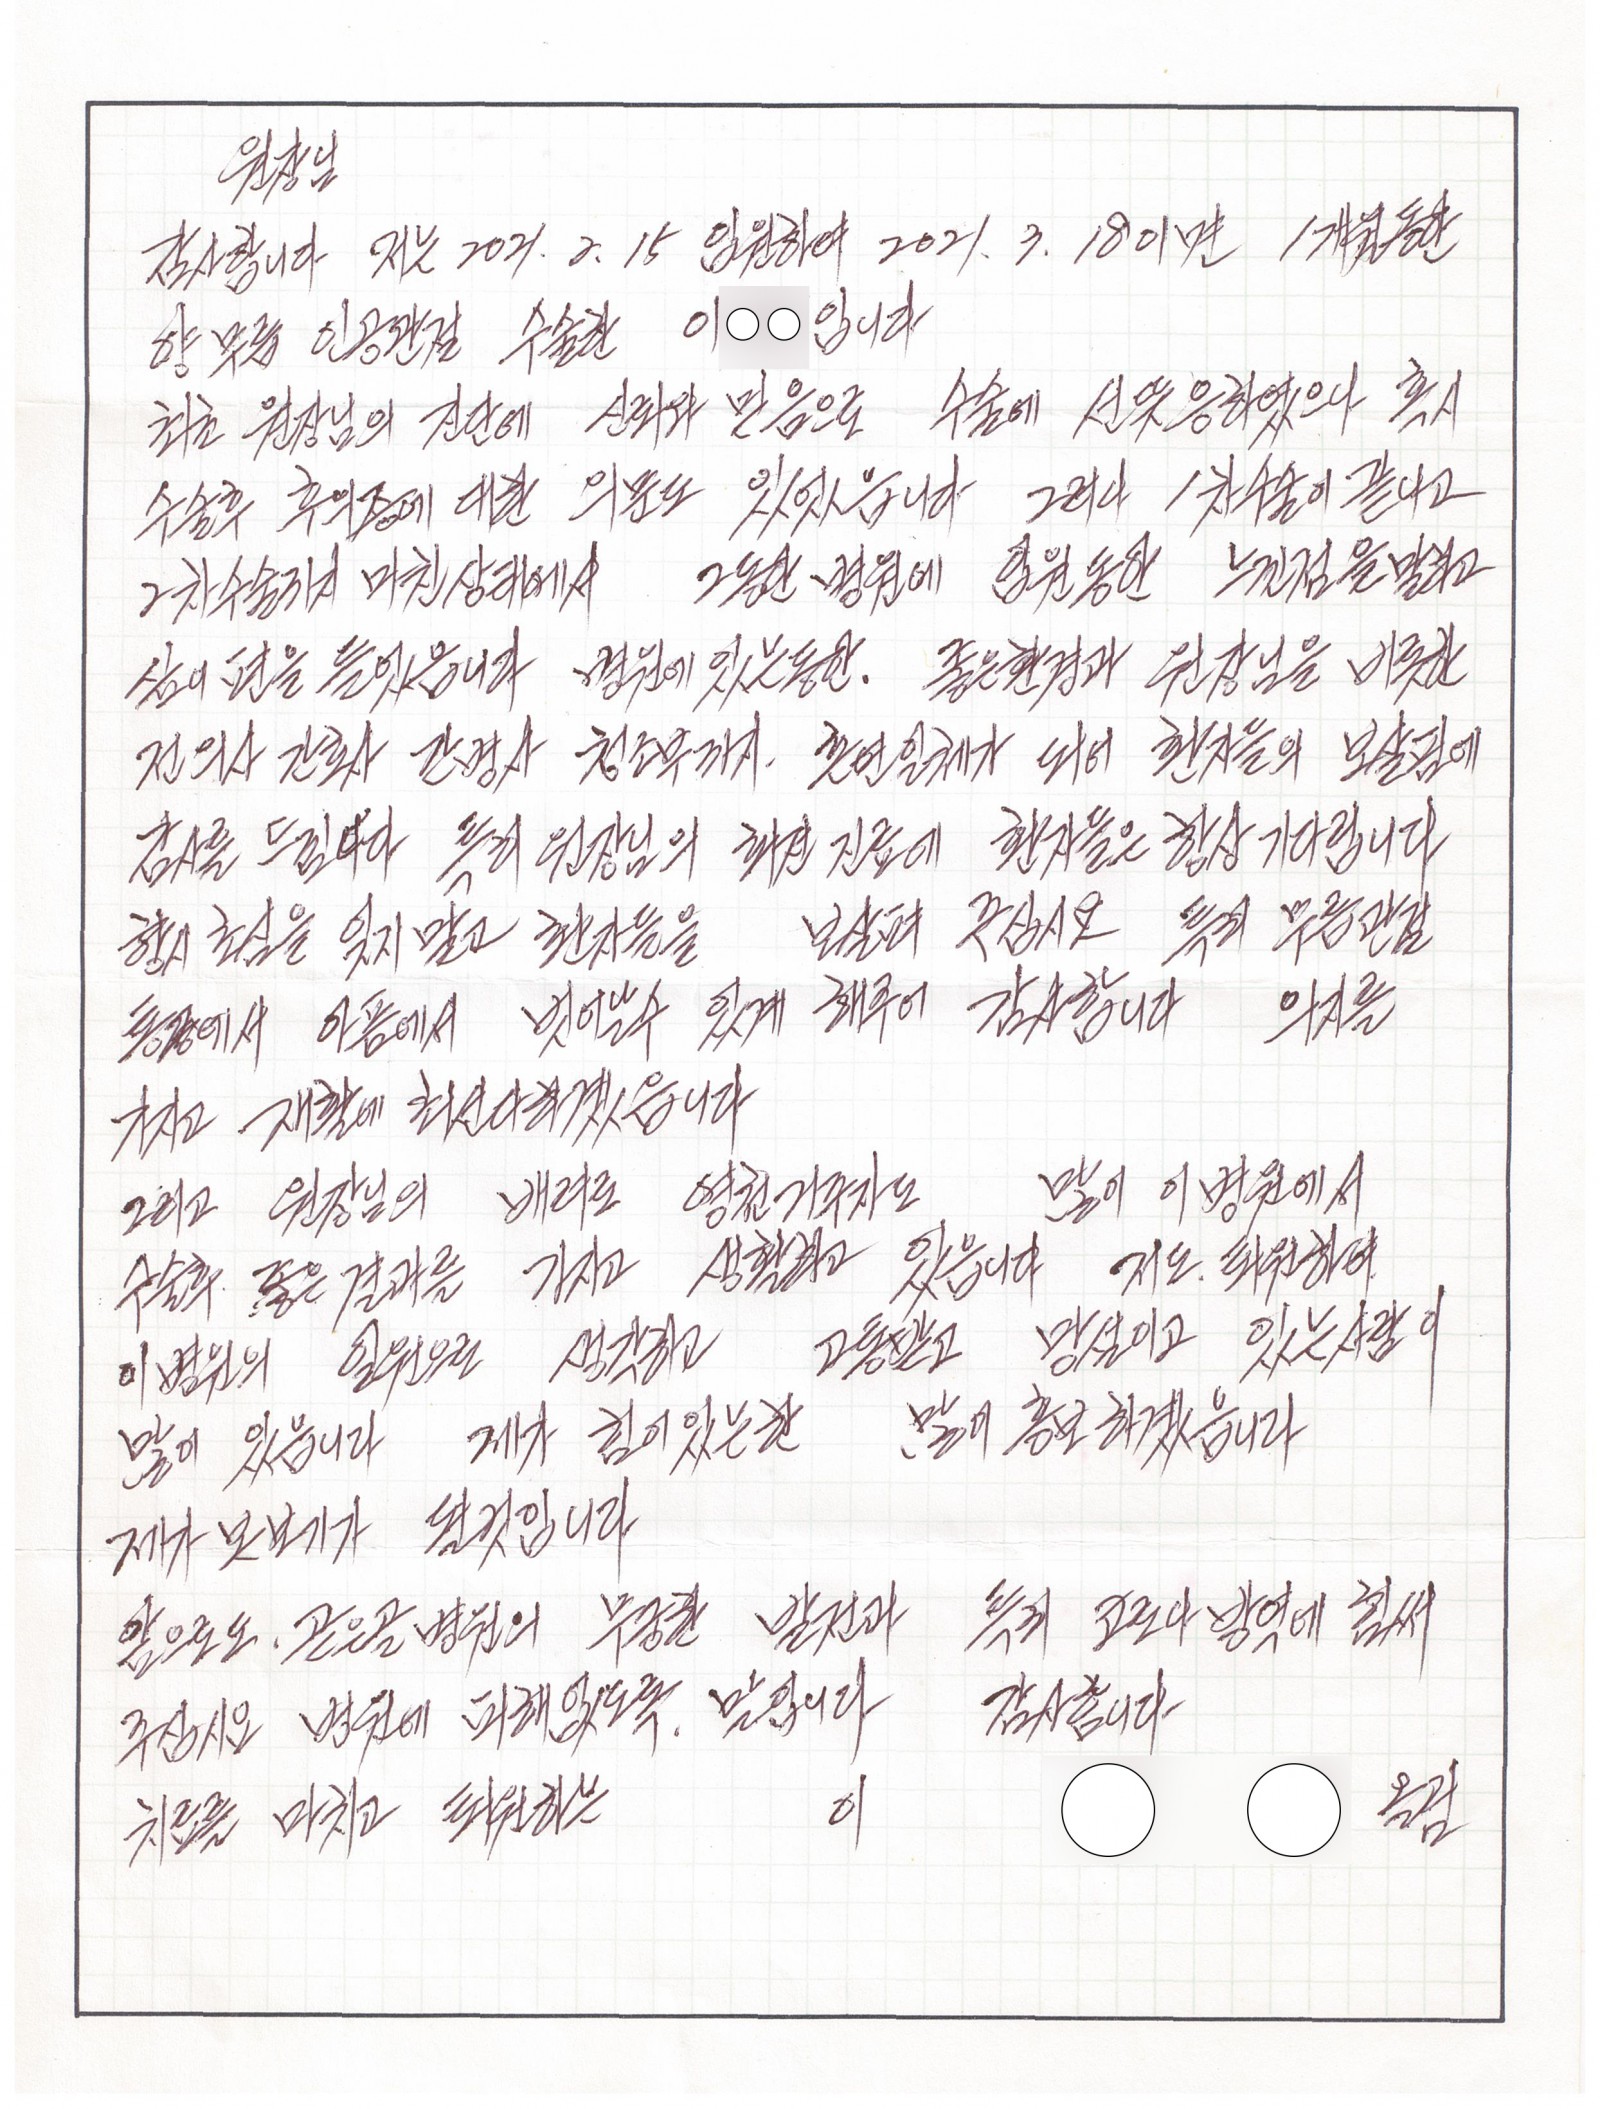 원장님
감사합니다 저는 2021. 2. 15 입원하여 2021. 3. 18이면 1개월동안
양 무릎 인공관절 수술한 이○○입니다
최초 원장님의 진단에 신뢰와 믿음으로 수술에 선뜻응하였으나 혹시
수술후 후의증에 대한 의문도 있었습니다 그러나 1차수술이 끝나고
2차수술까지 마친상태에서 그동안 병원에 입원동안 느낀점을말하고
싶어 펜을 들었습니다 병원에 있는동안. 좋은환경과 원장님을 비롯한
전 의사 간호사 간병사 청소부까지. 혼연일체가 되어 환자들의 보살핌에
감사를 드립니다 특히 원장님의 회진 진료에 환자들은 항상 기다립니다
항시 초심을 잊지말고 환자들을 보살펴 주십시요 특히 무릎관절
통증에서 아픔에서 벗어날수 있게 해주어 감사합니다 의지를
가지고 재활에 최선다하겠습니다
그리고 원장님의 배려로 영천거주자도 많이 이병원에서
수술후. 좋은결과를 가지고 생활하고 있습니다 저도. 퇴원하여
이병원의 일원으로 생각하고 고통받고 망설이고 있는사람이
많이 있습니다 제가 힘이있는한 많이 홍보하겠습니다
제가 본보기가 될것입니다
앞으로도. 곧은골병원의 무궁한 발전과 특히 코로나방역에 힘써
주십시요 병원에 피해없도록. 말입니다 감사합니다
치료를 마치고 퇴원하는 이 ○ ○ 올림